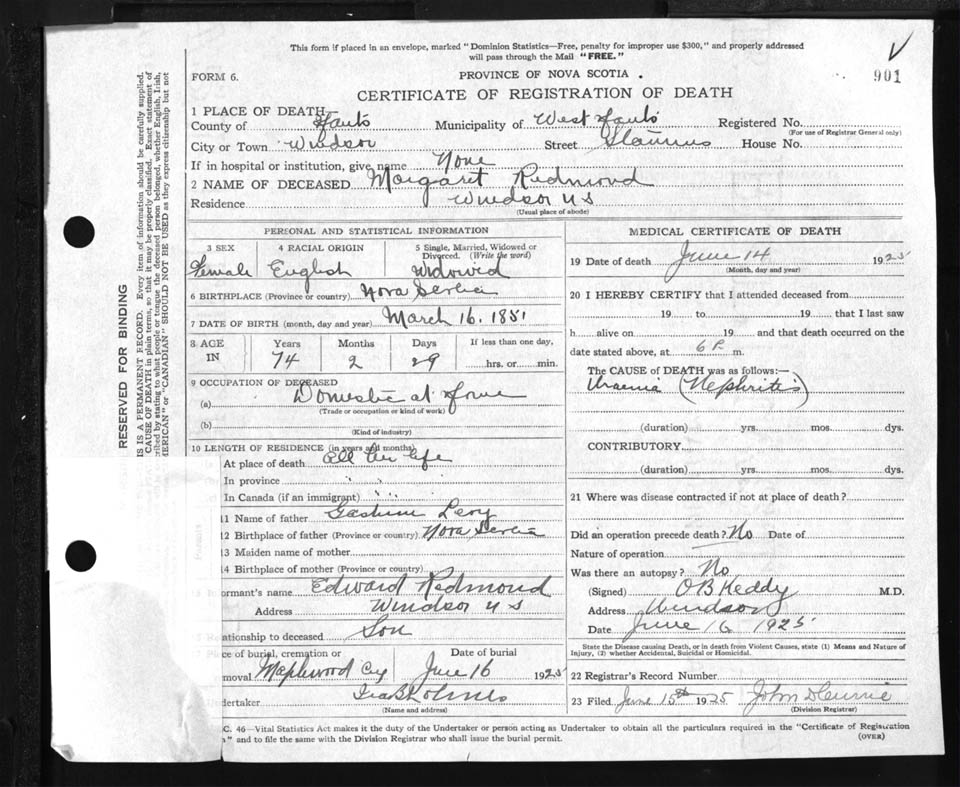 This form if placed in an envelope, marked "Dominion Statistics—Free, penalty for improper use $300," and properly addressed
will pass through the Mail "FREE."
FORM 6.
PROVINCE OF NOVA SCOTIA.
901
CERTIFICATE OF REGISTRATION OF DEATH
1 PLACE OF DEATH
County of Hants Municipality of West Hants Registered No.
(For use of Registrar General only)
City or Town Windsor Street House No.
If in hospital or institution, give name None
2 NAME OF DECEASED Margaret Redmond
Residence Windsor N S
(Usual place of abode)
PERSONAL AND STATISTICAL INFORMATION
3 SEX 4 RACIAL ORIGIN 5 Single, Married, Widowed or
Divorced. (Write the word)
Female English Widowed
6 BIRTHPLACE (Province or country) Nova Scotia
7 DATE OF BIRTH (month, day and year) March 16. 1851
8 AGE Years Months Days If less than one day,
IN 74 2 29 hrs. or min.
9 OCCUPATION OF DECEASED
(a) Domestic at Home
(Trade or occupation or kind of work)
(b)
(Kind of industry)
10 LENGTH OF RESIDENCE (in years and months)
At place of death All her life
In province " "
In Canada (if an immigrant) " "
11 Name of father Levy
12 Birthplace of father (Province or country) Nova Scotia
13 Maiden name of mother
14 Birthplace of mother (Province or country)
ormant's name Edward Redmond
Address Windsor N S
elationship to deceased Son
ce of burial, cremation or Date of burial
moval Maplewood Cey June 16 1925
dertaker
(Name and address)
MEDICAL CERTIFICATE OF DEATH
19 Date of death June 14 1925
(Month, day and year)
20 I HEREBY CERTIFY that I attended deceased from
19 to 19 that I last saw
h alive on 19 and that death occurred on the
date stated above, at 6 P. m.
The CAUSE of DEATH was as follows:—
Uraemia (Nephritis)
(duration) yrs. mos. dys.
CONTRIBUTORY
(duration) yrs. mos. dys.
21 Where was disease contracted if not at place of death?
Did an operation precede death? No Date of
Nature of operation
Was there an autopsy? No
(Signed) O B Keddy M.D.
Address Windsor
Date June 16 1925
State the Disease causing Death, or in death from Violent Causes, state (1) Means and Nature of
Injury, (2) whether Accidental, Suicidal or Homicidal.
22 Registrar's Record Number
23 Filed June 15th 1925 John
(Division Registrar)
C. 46—Vital Statistics Act makes it the duty of the Undertaker or person acting as Undertaker to obtain all the particulars required in the "Certificate of Registration
" and to file the same with the Division Registrar who shall issue the burial permit.
(OVER)
RESERVED FOR BINDING
IS IS A PERMANENT RECORD. Every item of information should be carefully supplied.
CAUSE OF DEATH in plain terms, so that it may be properly classified. Exact statement of
ribed by stating to what people or tongue the deceased person belonged, whether English, Irish,
MERICAN" or "CANADIAN" SHOULD NOT BE USED as they express citizenship but not